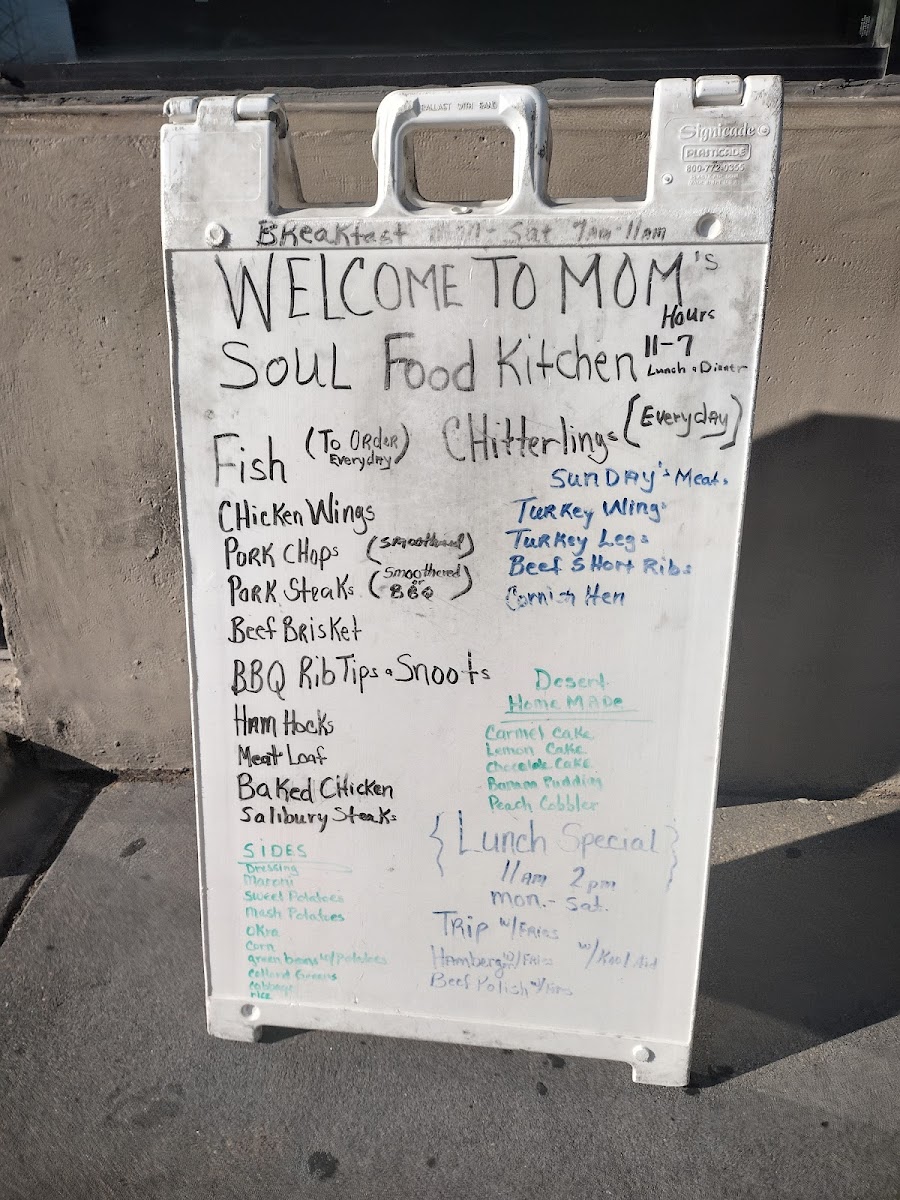 BALLAST WITH SAND
Signicade
PLASTICADE
800-772-0355
Breakfast Mon- Sat 7am-11am
WELCOME TO MOM's
Hours
Soul Food Kitchen 11-7
Lunch & Dinner
Fish (To Order Everyday)
CHitterlings (Everyday)
SunDAY's Meats
CHicken Wings
Turkey Wings
Pork CHops (smoothered)
Turkey Legs
Pork Steaks (Smoothered or BBQ)
Beef SHort Ribs
Cornish Hen
Beef Brisket
BBQ Rib Tips & Snoots
Ham Hocks
Meat Loaf
Baked Chicken
Salibury Steaks
Desert
Home MADe
Carmel Cake
Lemon Cake
Chocolate Cake
Banana Pudding
Peach Cobbler
SIDES
Dressing
Maroni
Sweet Potatoes
Mash Potatoes
OKra
Corn
green beans w/Potatoes
Collard Greens
Cabbage
rice
{Lunch Special}
11am 2pm
mon.- Sat.
Trip w/Fries
Hamberg w/Fries w/Kool Aid
Beef Polish w/Fries